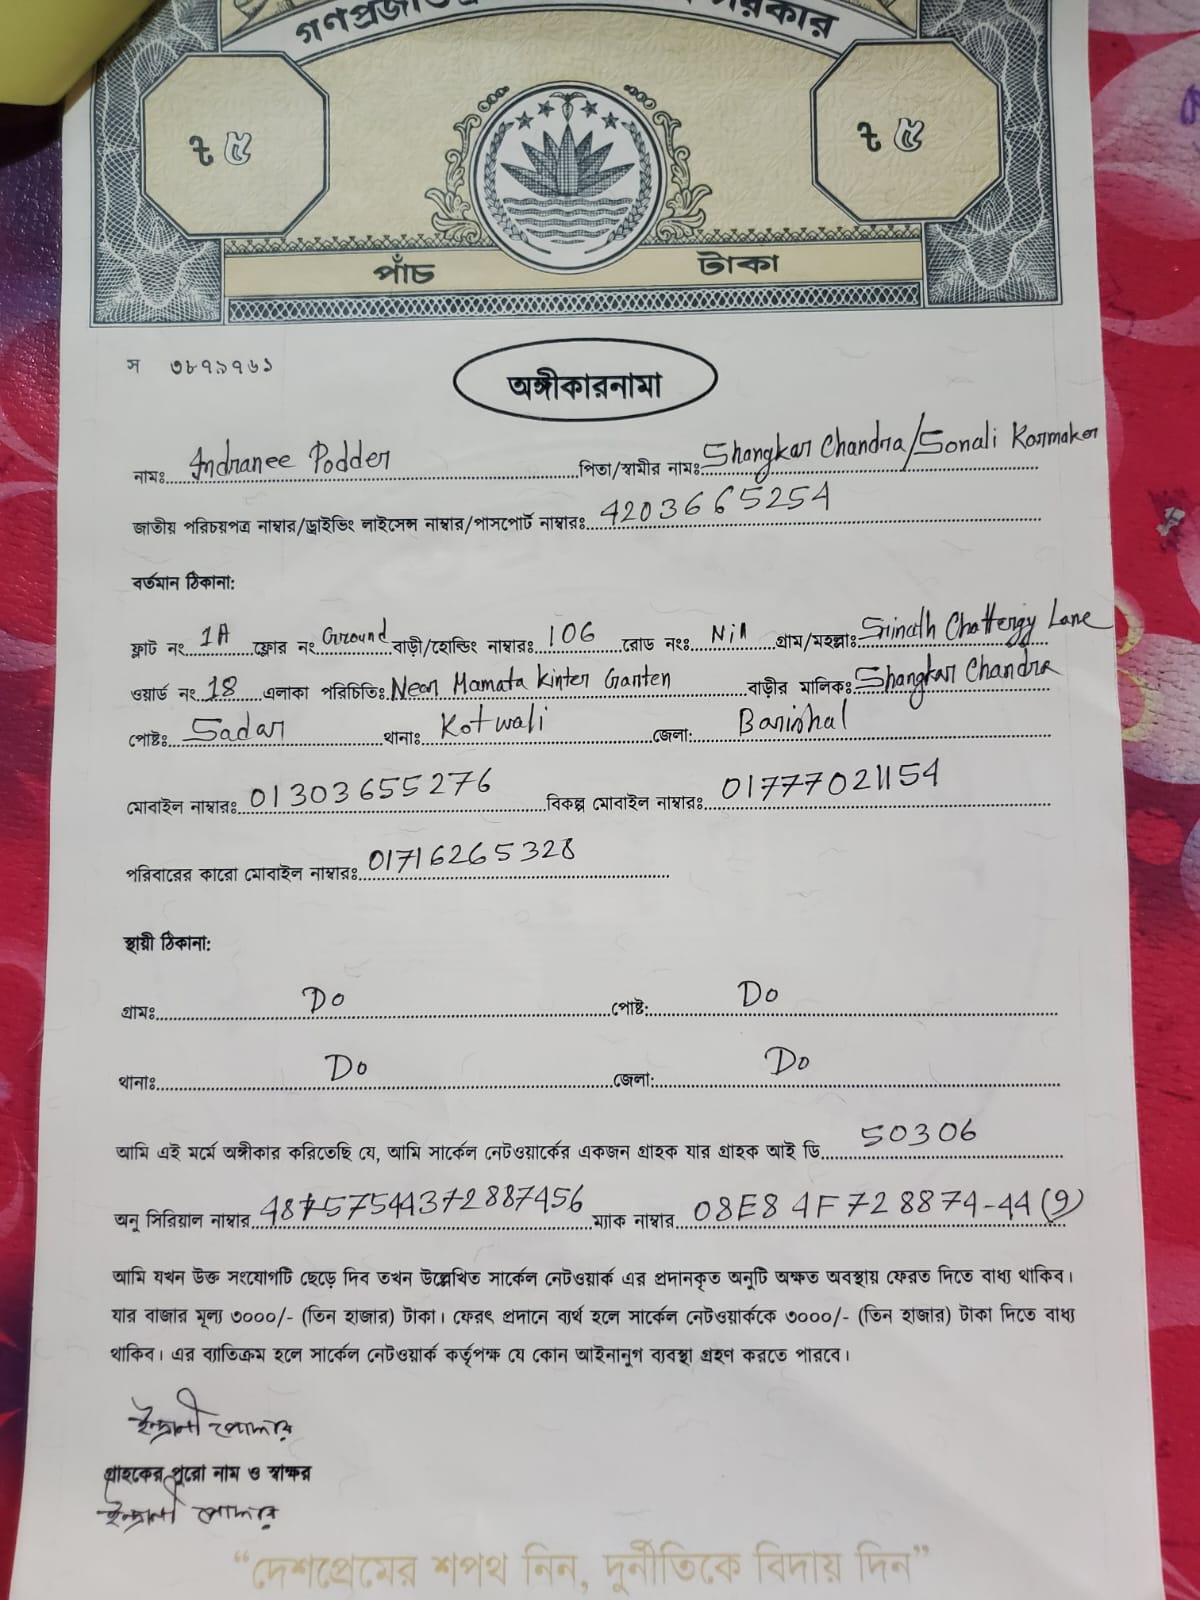 ৳ ৫ ৳ ৫
পাঁচ টাকা
স ৩৮৭৯৭৬১
অঙ্গীকারনামা
নামঃ Indranee Podder পিতা/স্বামীর নামঃ Shangkar Chandra/Sonali Karmaker
জাতীয় পরিচয়পত্র নাম্বার/ড্রাইভিং লাইসেন্স নাম্বার/পাসপোর্ট নাম্বারঃ 4203665254
বর্তমান ঠিকানা:
ফ্লাট নং 1A ফ্লোর নং Ground বাড়ী/হোল্ডিং নাম্বারঃ 106 রোড নংঃ Nil গ্রাম/মহল্লাঃ Srinath Chattergy Lane
ওয়ার্ড নং 18 এলাকা পরিচিতিঃ Near Mamata Kinter Garten বাড়ীর মালিকঃ Shangkar Chandra
পোষ্টঃ Sadar থানাঃ Kotwali জেলা: Barishal
মোবাইল নাম্বারঃ 01303655276 বিকল্প মোবাইল নাম্বারঃ 01777021154
পরিবারের কারো মোবাইল নাম্বারঃ 01716265328
স্থায়ী ঠিকানা:
গ্রামঃ Do পোষ্ট: Do
থানাঃ Do জেলা: Do
আমি এই মর্মে অঙ্গীকার করিতেছি যে, আমি সার্কেল নেটওয়ার্কের একজন গ্রাহক যার গ্রাহক আই ডি 50306
অনু সিরিয়াল নাম্বার 48757544372887456 ম্যাক নাম্বার 08E84F728874-44(9)
আমি যখন উক্ত সংযোগটি ছেড়ে দিব তখন উল্লেখিত সার্কেল নেটওয়ার্ক এর প্রদানকৃত অনুটি অক্ষত অবস্থায় ফেরত দিতে বাধ্য থাকিব।
যার বাজার মূল্য ৩০০০/- (তিন হাজার) টাকা। ফেরৎ প্রদানে ব্যর্থ হলে সার্কেল নেটওয়ার্ককে ৩০০০/- (তিন হাজার) টাকা দিতে বাধ্য
থাকিব। এর ব্যাতিক্রম হলে সার্কেল নেটওয়ার্ক কর্তৃপক্ষ যে কোন আইনানুগ ব্যবস্থা গ্রহণ করতে পারবে।
ইন্দ্রানী পোদ্দার
গ্রাহকের পুরো নাম ও স্বাক্ষর
ইন্দ্রানী পোদ্দার
“দেশপ্রেমের শপথ নিন, দুর্নীতিকে বিদায় দিন”